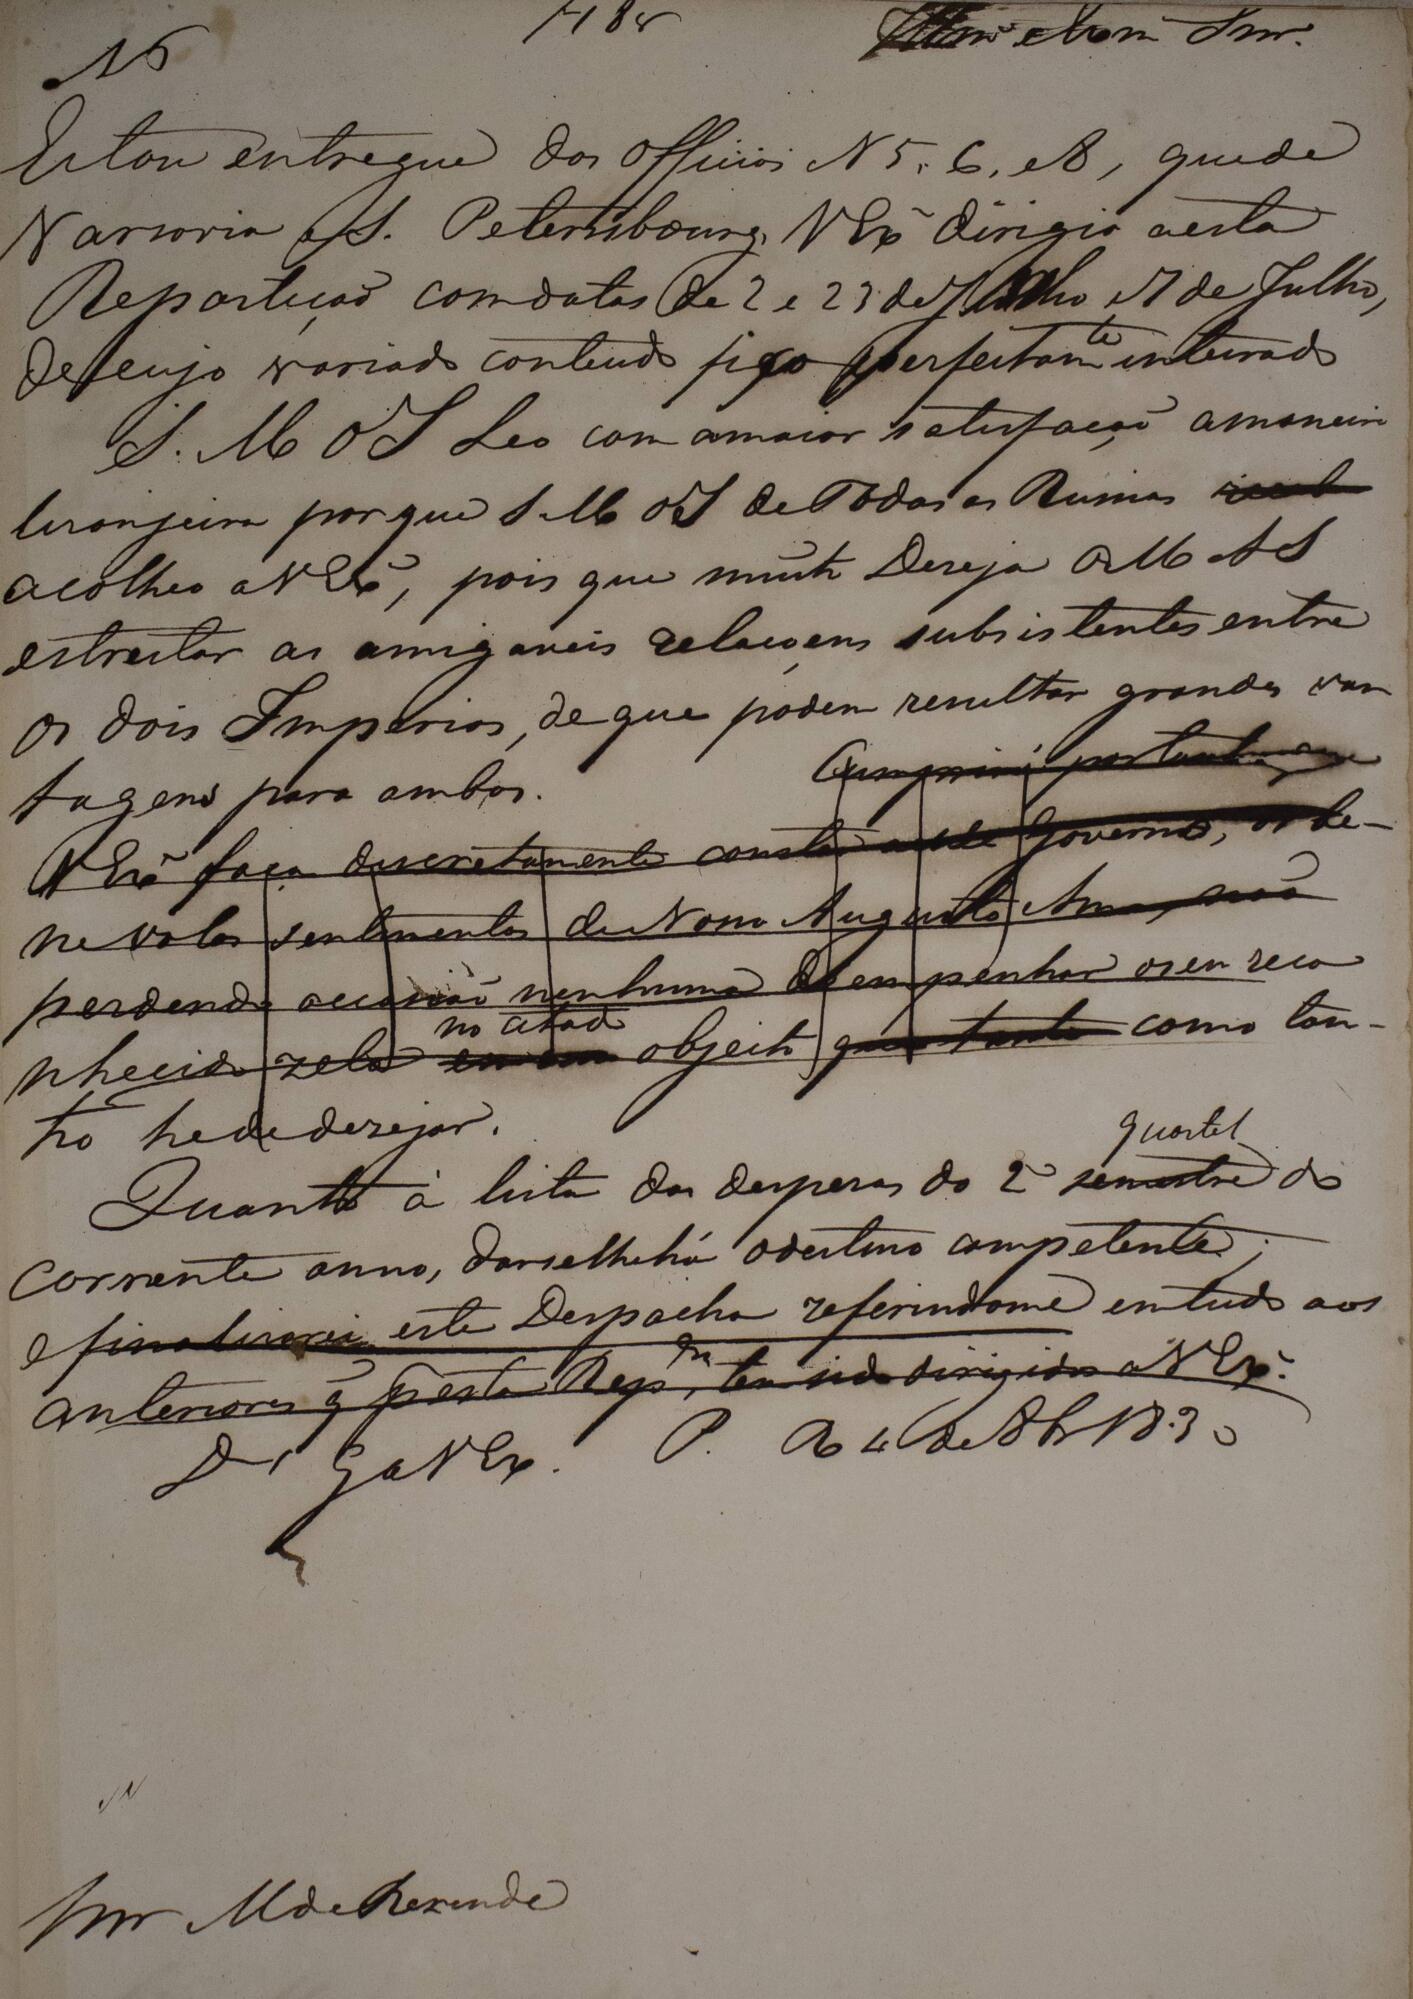 N 5
Illmo e Exmo Snr.
Estou entregue dos Officios N 5. 6. e 8, que de
Varsovia e S. Petersbourg, V Exa dirigio a esta
Repartição com datas de 2 e 23 de Junho, e 7 de Julho,
de cujo variado conteudo fico perfeitamte inteirado
S. M. O I Leo com a maior satisfação a maneira
lisonjeira por que S. M. O I de Todas as Russias
acolheo a V Exa, pois que muito Deseja O M A S
estreitar as amigaveis relaçoens subsistentes entre
os dois Imperios, de que podem resultar grandes van
tagens para ambos. Cumprirá portanto que
V Exa faça discretamente constar a esse Governo, os be-
nevolos sentimentos de Nosso Augusto Amo, não
perdendo occasião nenhuma de empenhar o seu reco
nhecido zelo no citado objecto como tan-
to he de desejar.
Quanto á lista das despezas do 2o semestre quartel do
corrente anno, dar-se lhe há o destino competente;
e finalisarei este Despacho referindome em tudo aos
anteriores q̃ p esta Repam tem sido dirigidos a V Exa.
Ds Ge a V Ex. P. R 4 de 8br 1830
Snr M de Rezende